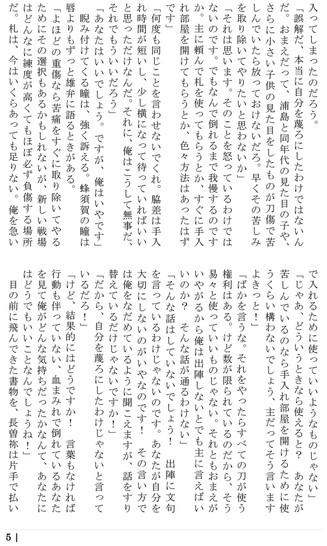 入ってしまったのだろう。
「誤解だ、本当に自分を蔑ろにしたわけではないん
だ。おまえだって、浦島と同年代の見た目の子や、
さらに小さい子供の見た目をしたものが刀傷で苦
しんでいたら放っておけないだろう。早くその苦しみ
を取り除いてやりたいと思わないか」
「それは思います。そのことを怒っているわけでは
ないのです。でもなんで倒れるまで我慢するのです
か。主に頼んで札を使ってもらうとか、すぐに手入
れ部屋を開けてもらうとか、色々方法はあったはず
です」
「何度も同じことを言わせないでくれ。脇差は手入
れ時間が短いし、少し横になって待っていればいい
と思っただけなんだ。それに、俺はこうして無事だ、
それでもういいだろう」
「あなたはいいでしょう。ですが、俺はいやです」
睨み付けてくる瞳は、強く訴える。蜂須賀の瞳は
唇よりもずっと雄弁に語るときがある。
「よほどの重傷なら苦痛をすぐに取り除いてやる
ためにその選択もあるかもしれないが、新しい戦場
はどんなに練度が高くてもほぼ必ず負傷する場所
だ。札は、今はいくらあっても足りない。俺を急い
で入れるために使っていいようなものじゃない」
「じゃあ、どういうときなら使えると？　あなたが
苦しんでいるのなら手入れ部屋を開けるために使
うくらい構わないでしょう、主だってそう言います
よきっと！」
「ばかを言うな。それをやったらすべての刀が使う
権利はある。けど数が限られているのだから、そう
易々と使っていいものじゃない。それともおまえが
いやがるから俺は出陣しないとでも主に言えばい
いのか？　そんな話が通るわけない」
「そんな話はしていないでしょう！　出陣に文句
を言っているわけじゃないのです。あなたが自分を
大切にしないのがいやなのです！　その言い方で
は俺をなだめているように聞こえますが、話をすり
替えているだけじゃないですか！」
「だから、自分を蔑ろにしたわけじゃないと言って
いるだろ！」
「けど、結果的にはどうですか！　言葉もなければ
行動も伴っていない、血まみれで倒れているあなた
を見て俺がどんな気持ちだったかなんて、あなたに
はどうでもいいことなんでしょうね！」
目の前に飛んできた書物を、長曽祢は片手で払い
5 |